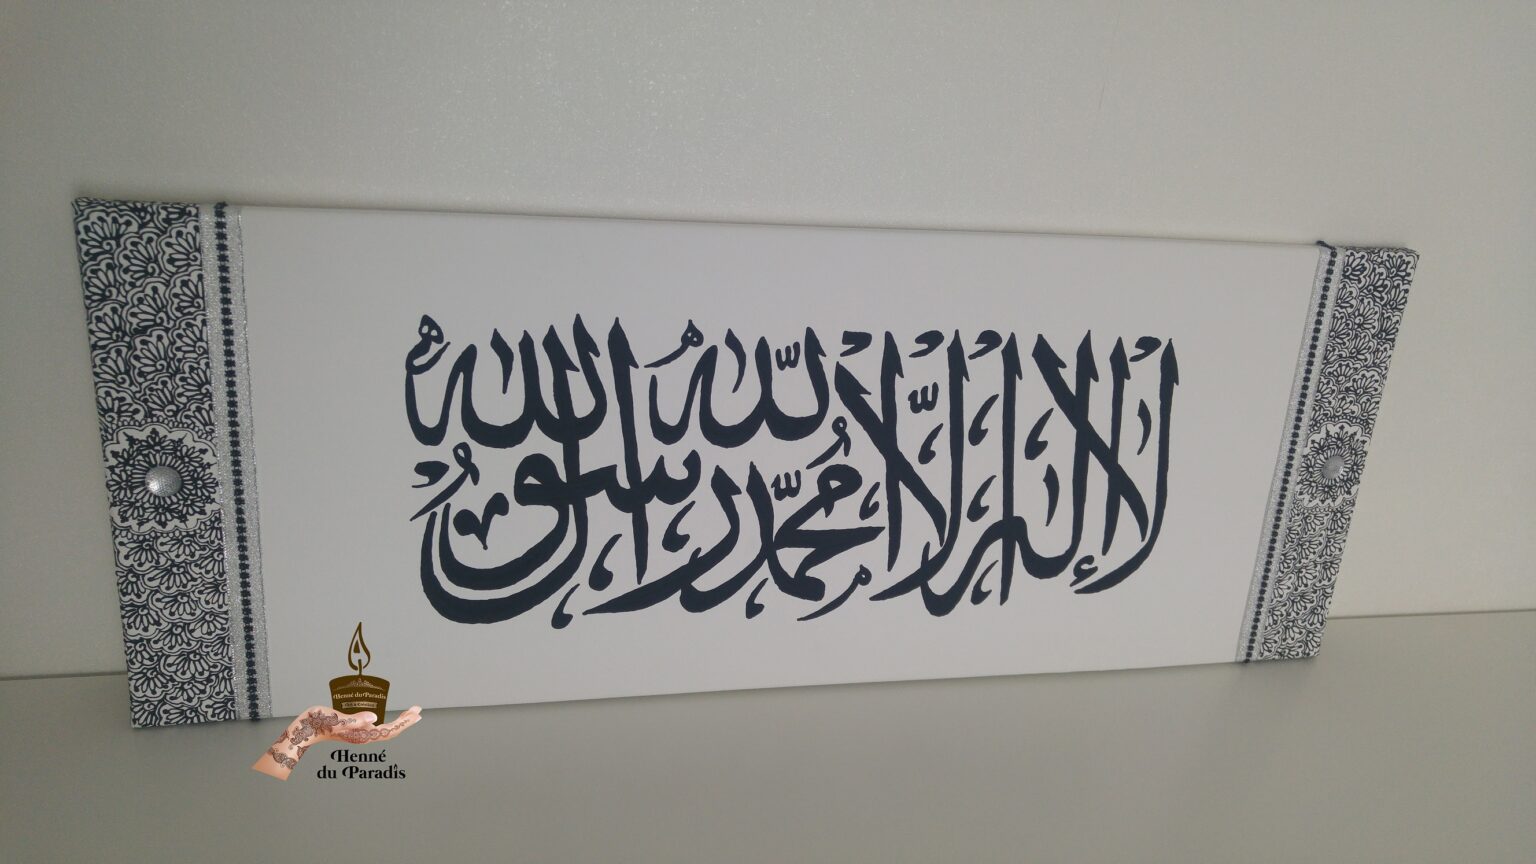 لا إله إلا الله محمد رسول الله
Henné du Paradis
Henné
du Paradis